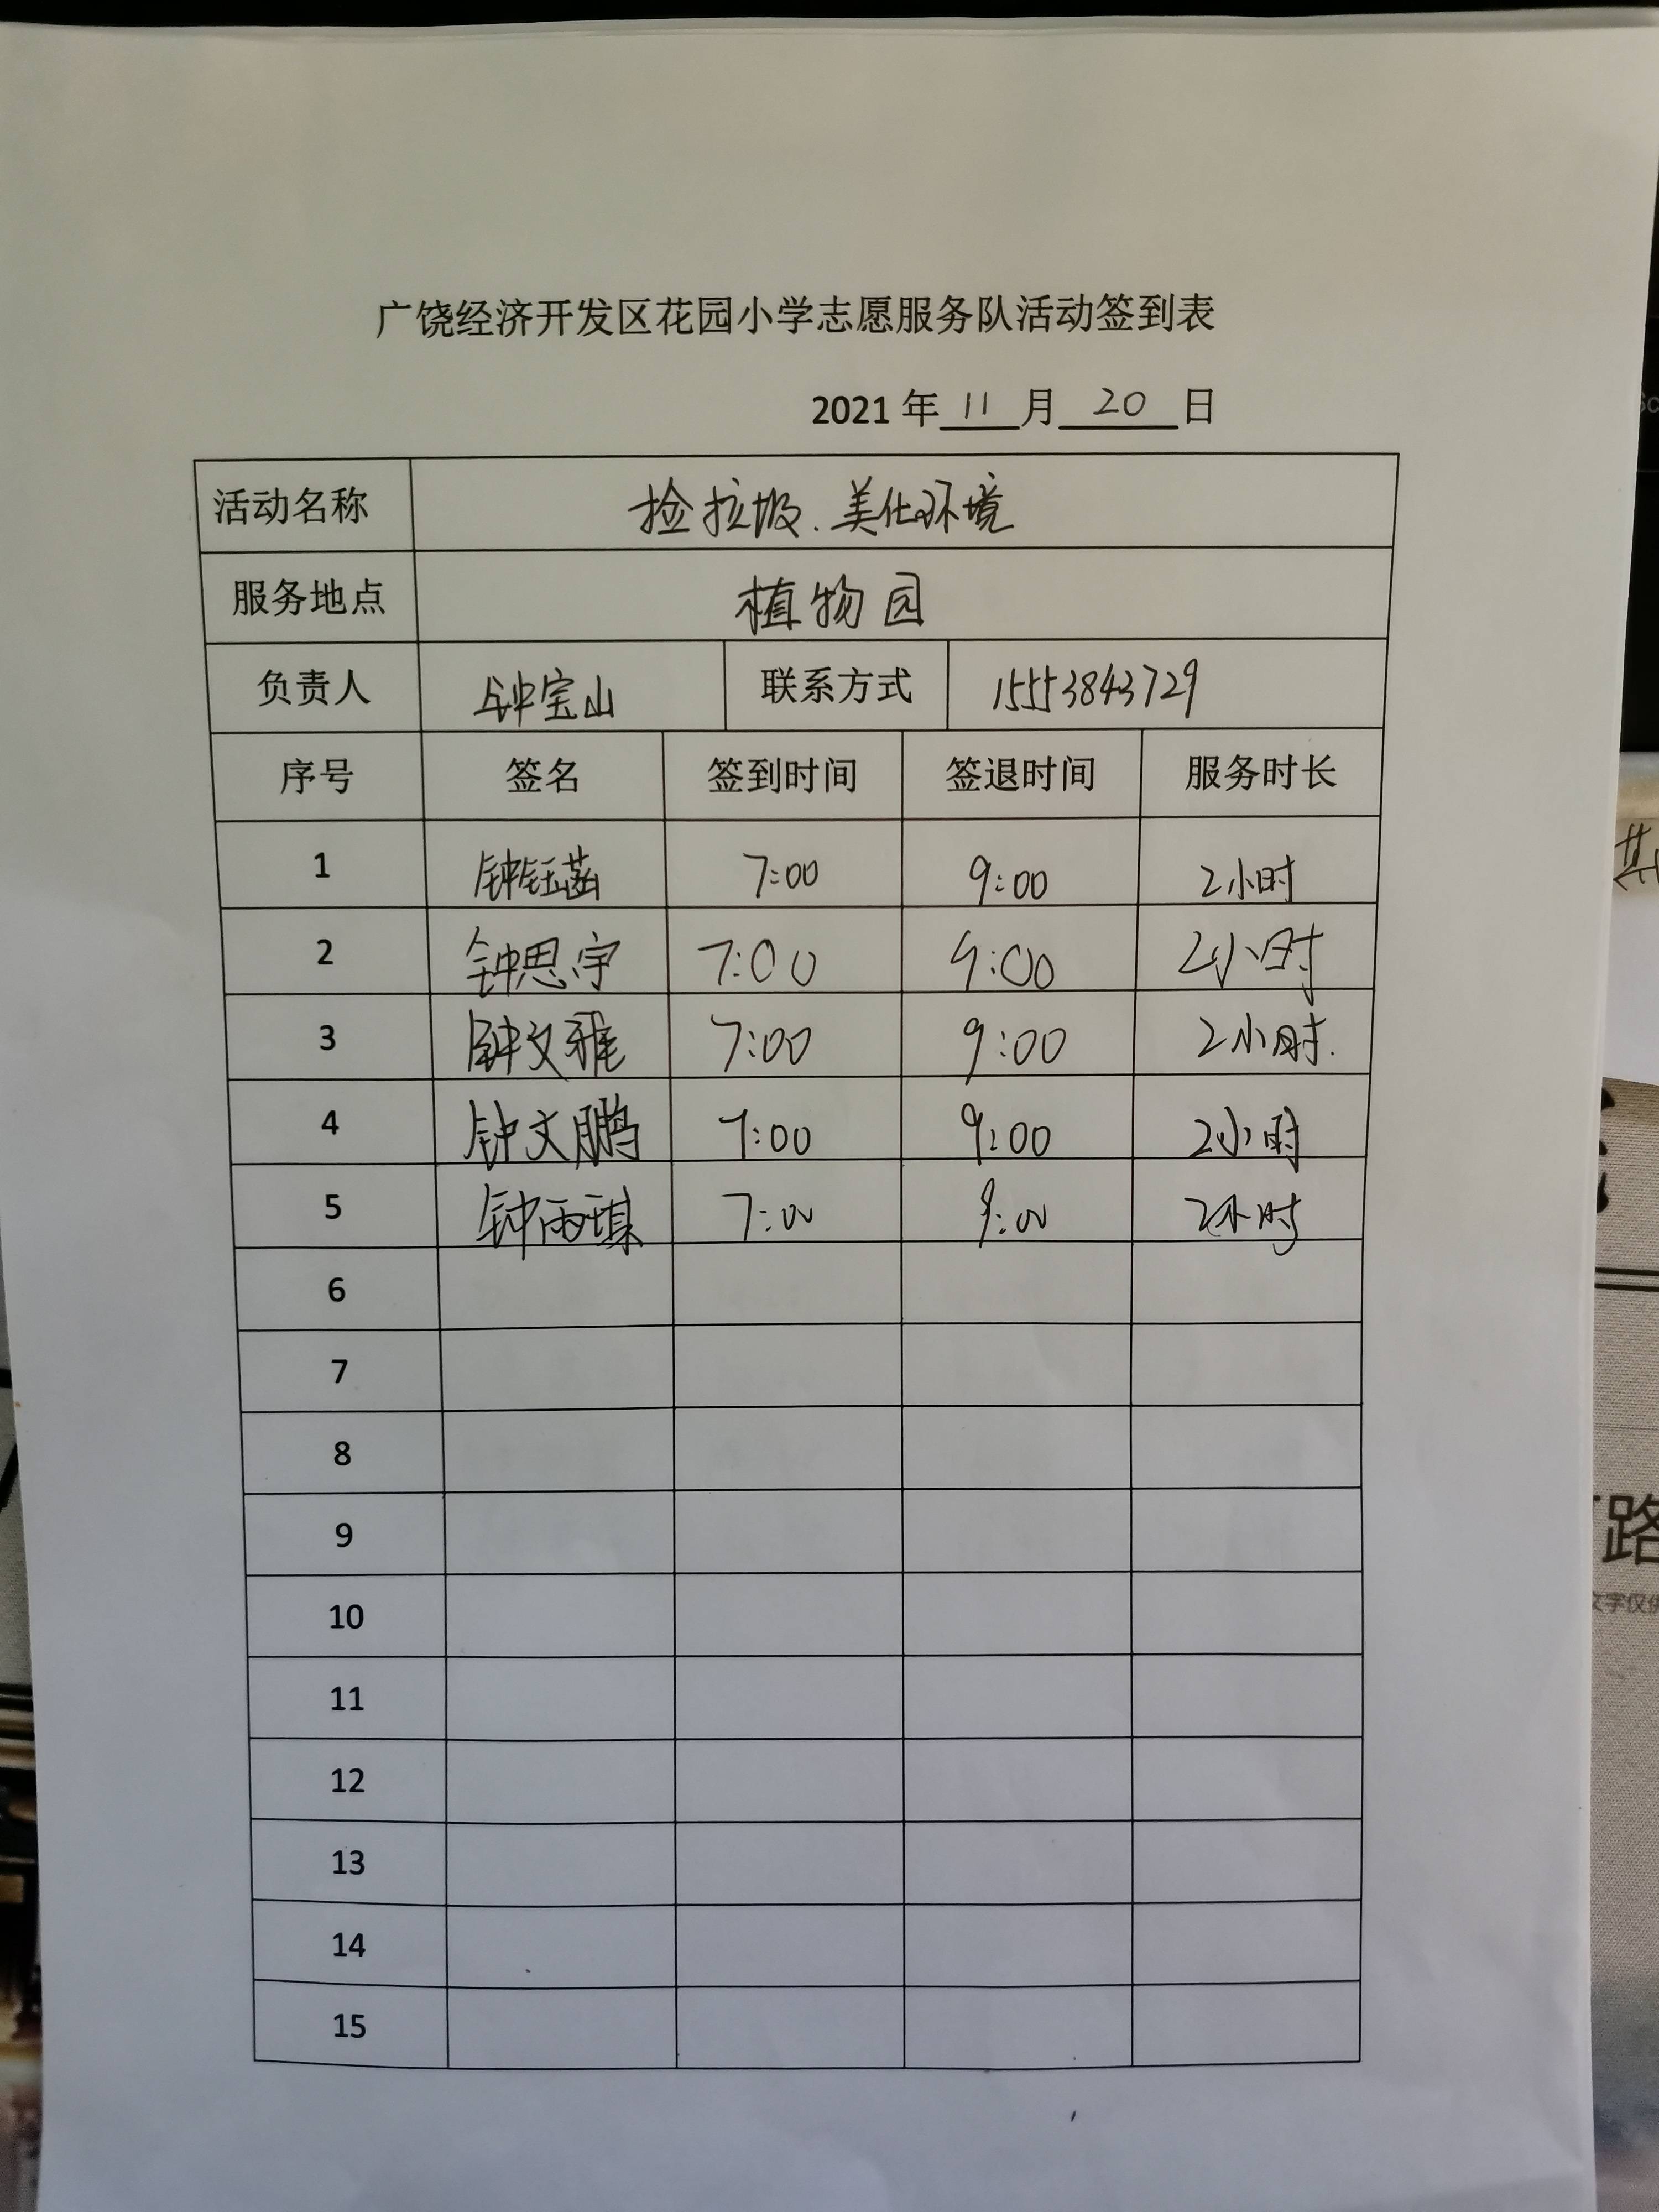 广饶经济开发区花园小学志愿服务队活动签到表
2021 年 11 月 20 日
活动名称 捡垃圾.美化环境
服务地点 植物园
负责人 钟宝山 联系方式 15553843729
序号 签名 签到时间 签退时间 服务时长
1 钟钰菡 7:00 9:00 2小时
2 钟思宇 7:00 9:00 2小时
3 钟文雅 7:00 9:00 2小时.
4 钟文鹏 7:00 9:00 2小时
5 钟雨琪 7:00 9:00 2小时
6
7
8
9
10
11
12
13
14
15
路
文字仅供